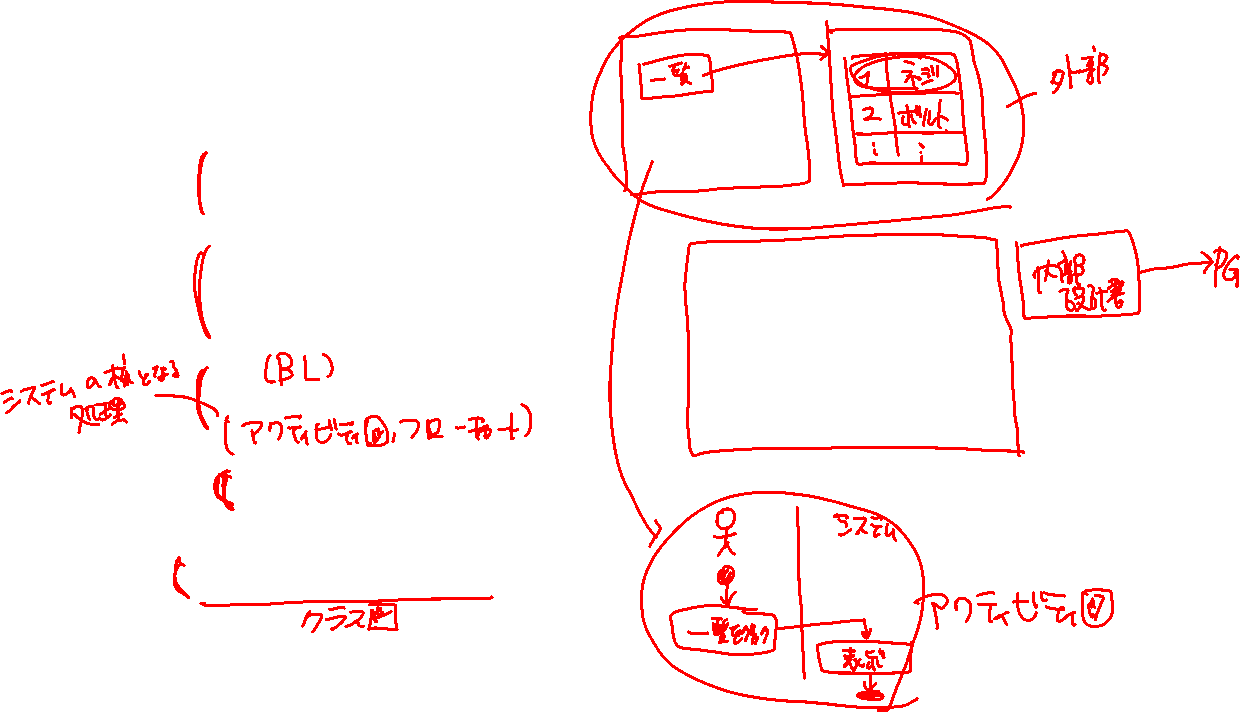 一覧
1 ネジ
2 ボルト
⋮ ⋮
外部
内部
設計書
PG
システムの核となる
処理
(BL)
(アクティビティ図,フローチャート)
クラス図
システム
一覧をクリック
表示
アクティビティ図